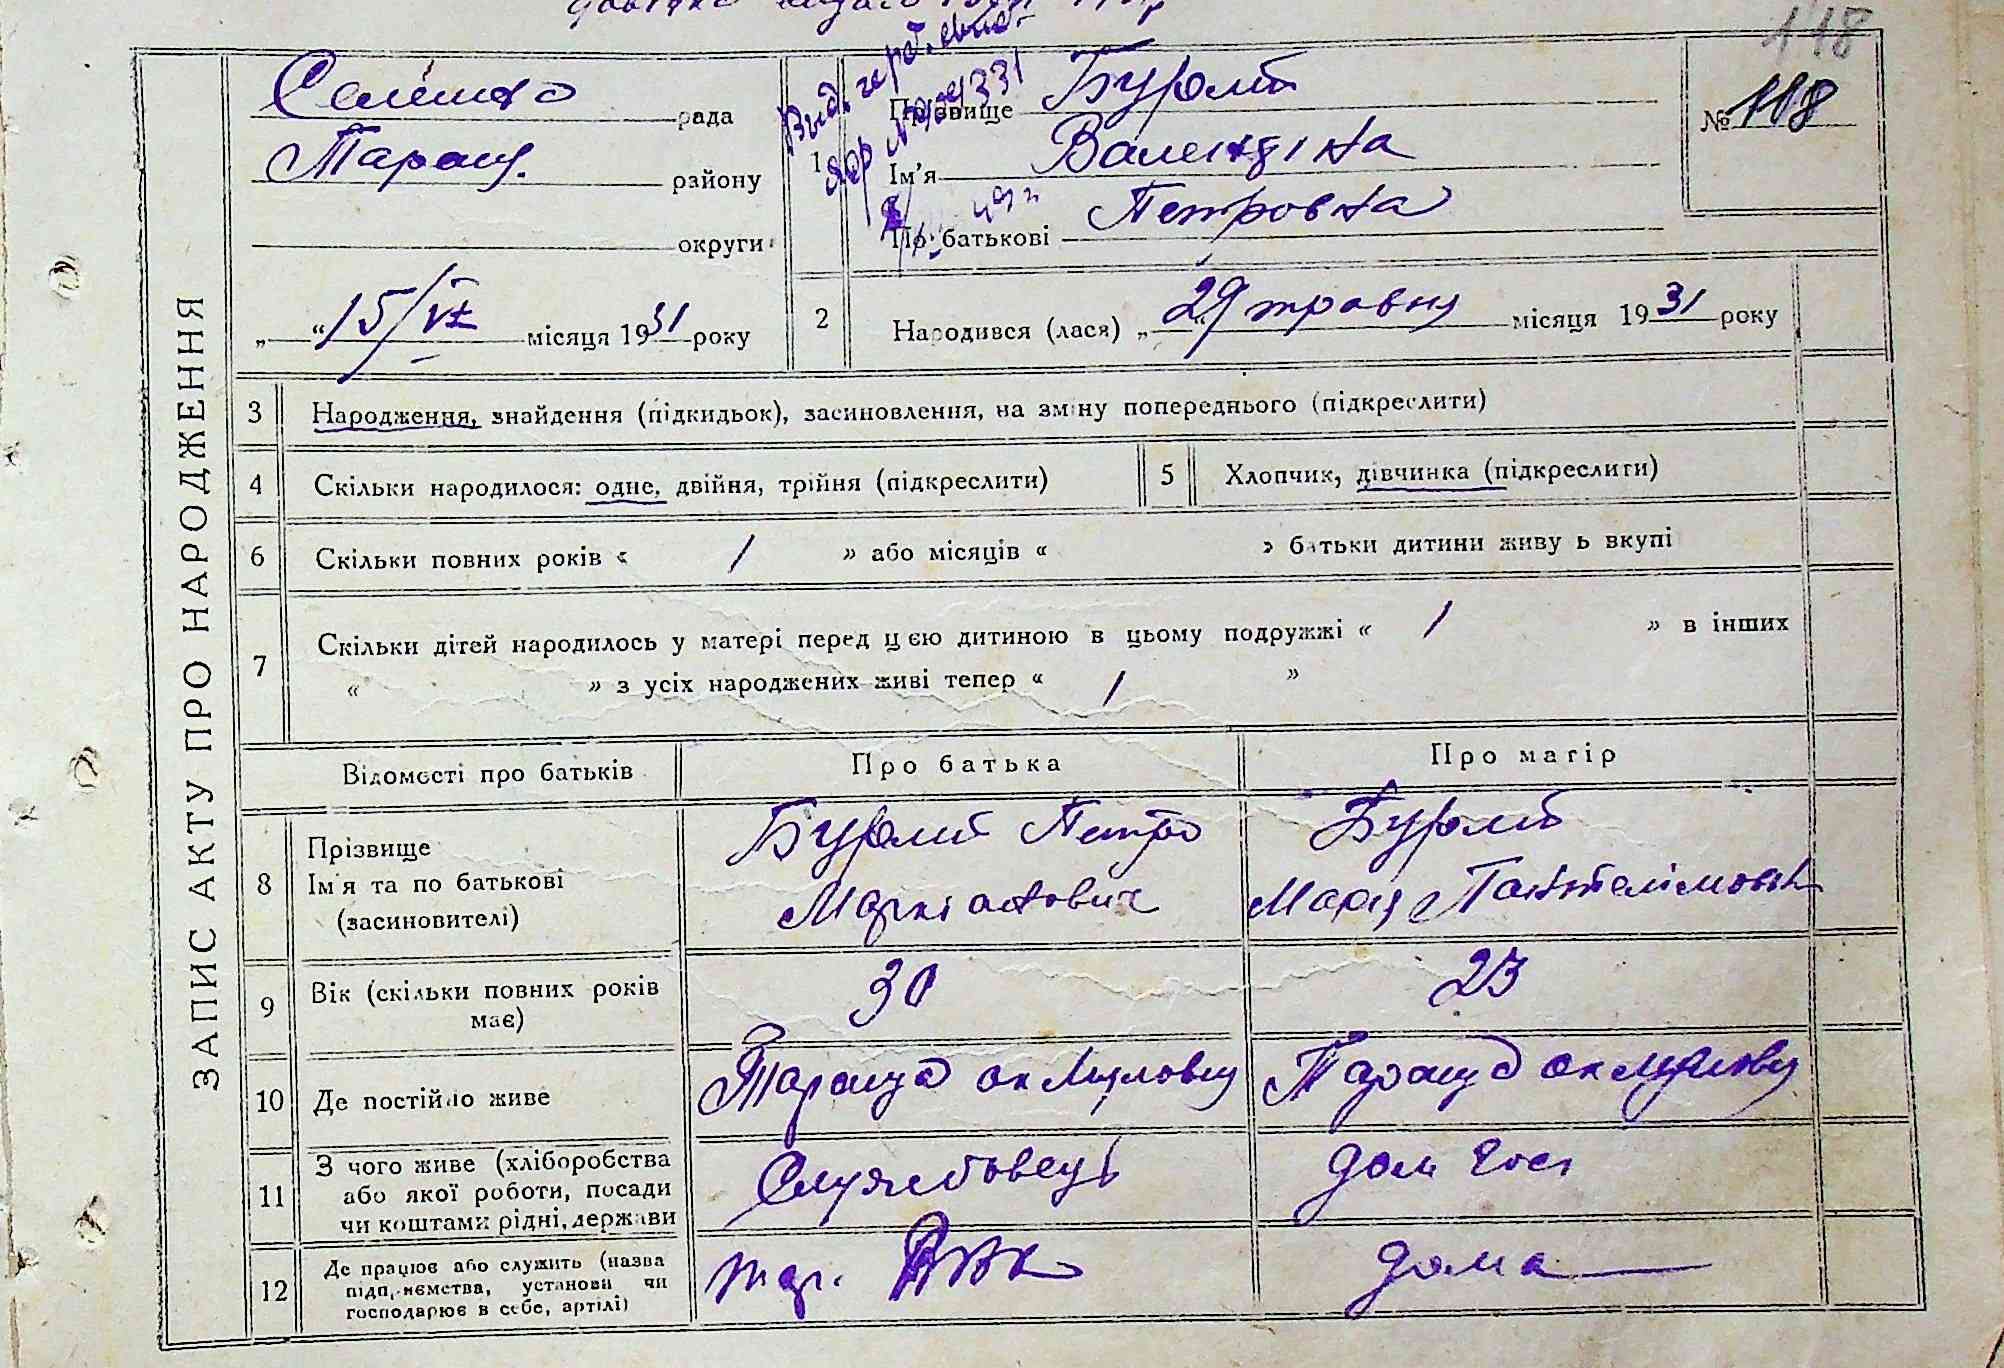 118
Селищна рада
Таращ. району
округи
„15/VI“ місяця 1931 року
1
Прізвище Бурлит
Ім'я Валентіна
По батькові Петровна
№ 118
2
Народився (лася) „29“ травня місяця 1931 року
ЗАПИС АКТУ ПРО НАРОДЖЕННЯ
3 Народження, знайдення (підкидьок), засиновлення, на зміну попереднього (підкреслити)
4 Скільки народилося: одне, двійня, трійня (підкреслити)
5 Хлопчик, дівчинка (підкреслити)
6 Скільки повних років « 1 » або місяців « » батьки дитини живуть вкупі
7 Скільки дітей народилось у матері перед цією дитиною в цьому подружжі « 1 » в інших
« » з усіх народжених живі тепер « 1 »
Відомості про батьків
Про батька
Про матір
8 Прізвище
Ім'я та по батькові
(засиновителі)
Бурлит Петро
Маркіанович
Бурлит
Марія Пантелімовн
9 Вік (скільки повних років
має)
30
23
10 Де постійно живе
Тараща
Тараща
11 З чого живе (хліборобства
або якої роботи, посади
чи коштами рідні, держави
Службовець
дом гос
12 Де працює або служить (назва
підприємства, установи чи
господарює в себе, артілі)
тар. РВК
дома